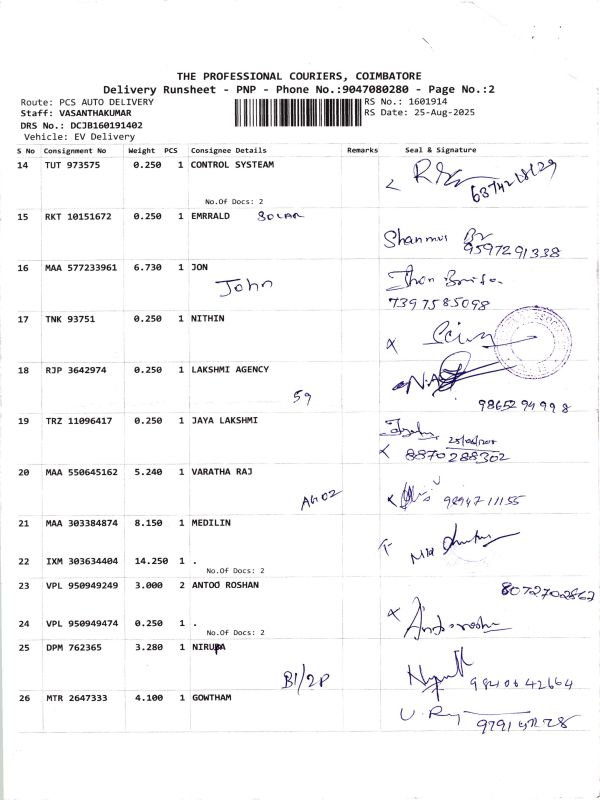 THE PROFESSIONAL COURIERS, COIMBATORE
Delivery Runsheet - PNP - Phone No.:9047080280 - Page No.:2
Route: PCS AUTO DELIVERY
RS No.: 1601914
Staff: VASANTHAKUMAR
RS Date: 25-Aug-2025
DRS No.: DCJB160191402
Vehicle: EV Delivery
S No Consignment No Weight PCS Consignee Details Remarks Seal & Signature
14 TUT 973575 0.250 1 CONTROL SYSTEAM
No.Of Docs: 2
15 RKT 10151672 0.250 1 EMRRALD SOLAR
Shanmus
9597291338
16 MAA 577233961 6.730 1 JON
John
7397585098
17 TNK 93751 0.250 1 NITHIN
18 RJP 3642974 0.250 1 LAKSHMI AGENCY
59
9865294998
19 TRZ 11096417 0.250 1 JAYA LAKSHMI
8870288302
20 MAA 550645162 5.240 1 VARATHA RAJ
AG02
9894711155
21 MAA 303384874 8.150 1 MEDILIN
22 IXM 303634404 14.250 1 .
No.Of Docs: 2
23 VPL 950949249 3.000 2 ANTOO ROSHAN
8072702862
24 VPL 950949474 0.250 1 .
No.Of Docs: 2
25 DPM 762365 3.280 1 NIRUPA
B1/2P
9840642664
26 MTR 2647333 4.100 1 GOWTHAM